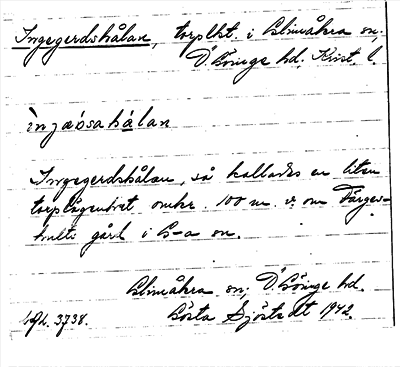 Ingegerdshålan, torplht. i Glimåkra sn;
Ö. Göinge hd. Krist. l.
ìnjaósahálan
Ingegerdshålan, så kallades en liten
torplägenhet omkr. 100 m. v. om Färges-
hults gård i G-a sn.
Glimåkra sn; Ö. Göinge hd.
Gösta Sjöstedt 1942.
3738.